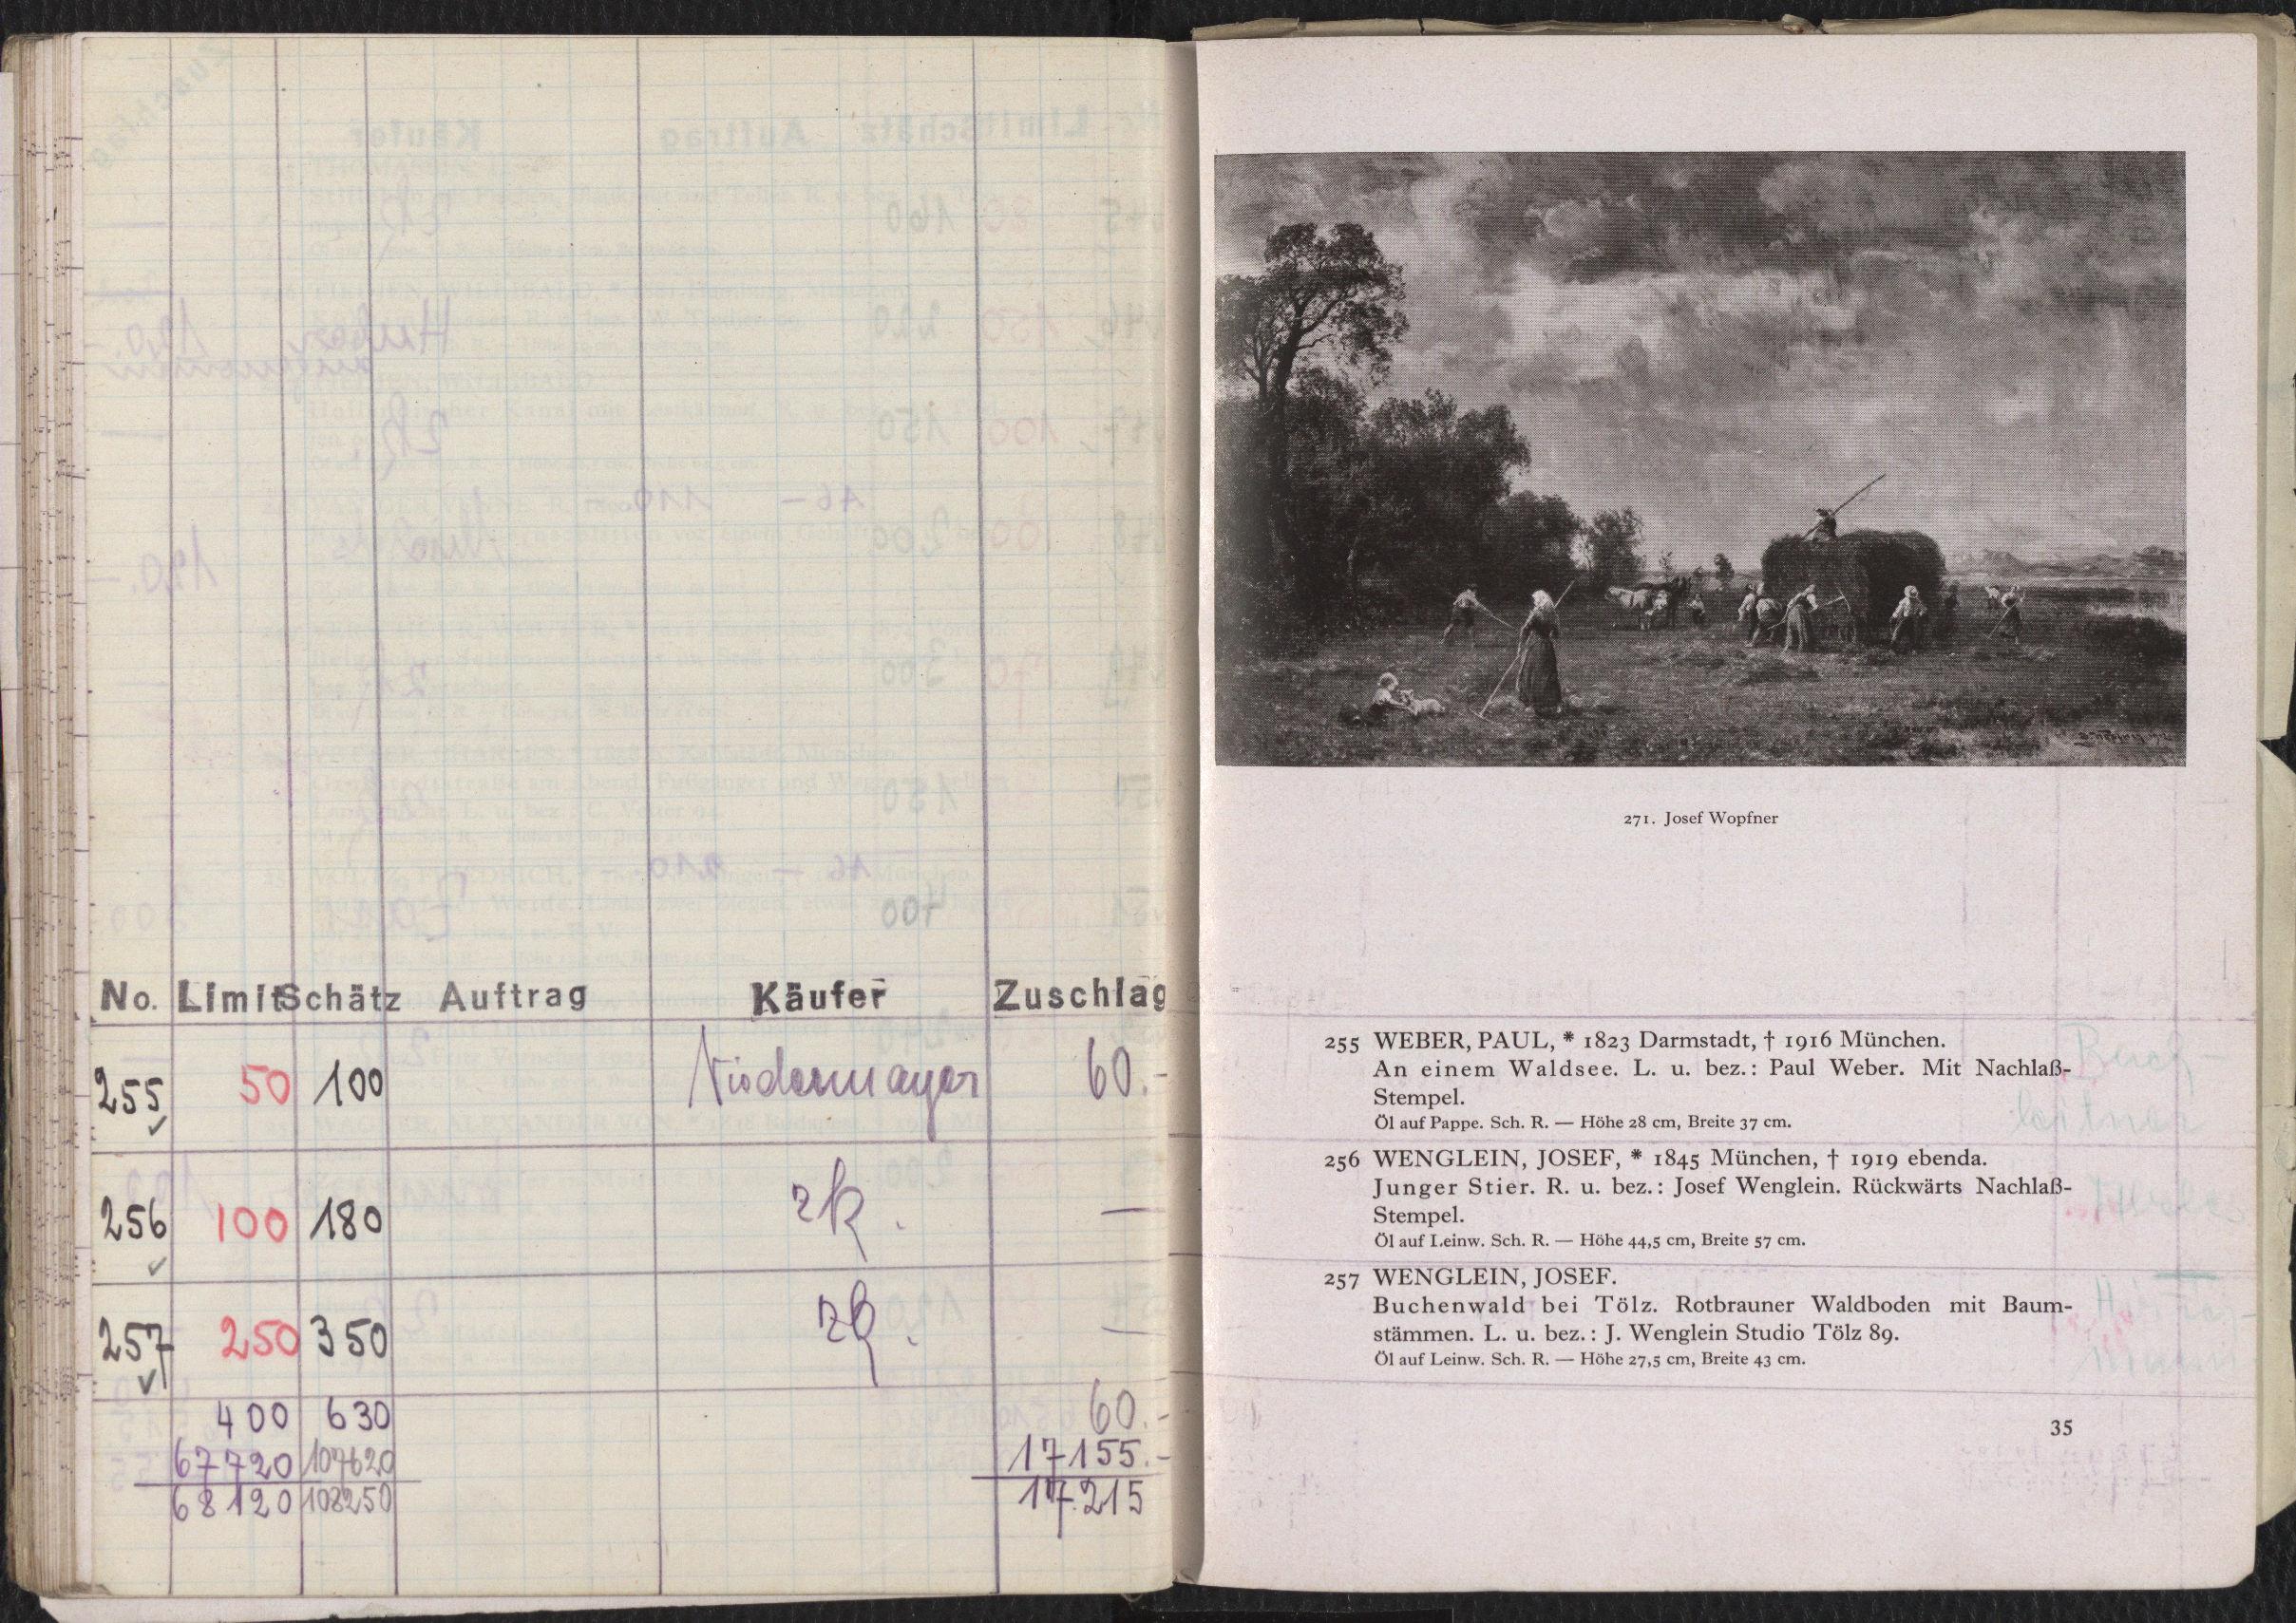 No. Limit Schätz Auftrag Käufer Zuschlag
255 50 100 Niedermayer 60.-
256 100 180 zk. —
257 250 350 zk. —
400 630 60.-
67720 107620 17155.-
68120 108250 17.215
271. Josef Wopfner
255 WEBER, PAUL, * 1823 Darmstadt, † 1916 München.
An einem Waldsee. L. u. bez.: Paul Weber. Mit Nachlaß-
Stempel.
Öl auf Pappe. Sch. R. — Höhe 28 cm, Breite 37 cm.
256 WENGLEIN, JOSEF, * 1845 München, † 1919 ebenda.
Junger Stier. R. u. bez.: Josef Wenglein. Rückwärts Nachlaß-
Stempel.
Öl auf Leinw. Sch. R. — Höhe 44,5 cm, Breite 57 cm.
257 WENGLEIN, JOSEF.
Buchenwald bei Tölz. Rotbrauner Waldboden mit Baum-
stämmen. L. u. bez.: J. Wenglein Studio Tölz 89.
Öl auf Leinw. Sch. R. — Höhe 27,5 cm, Breite 43 cm.
35